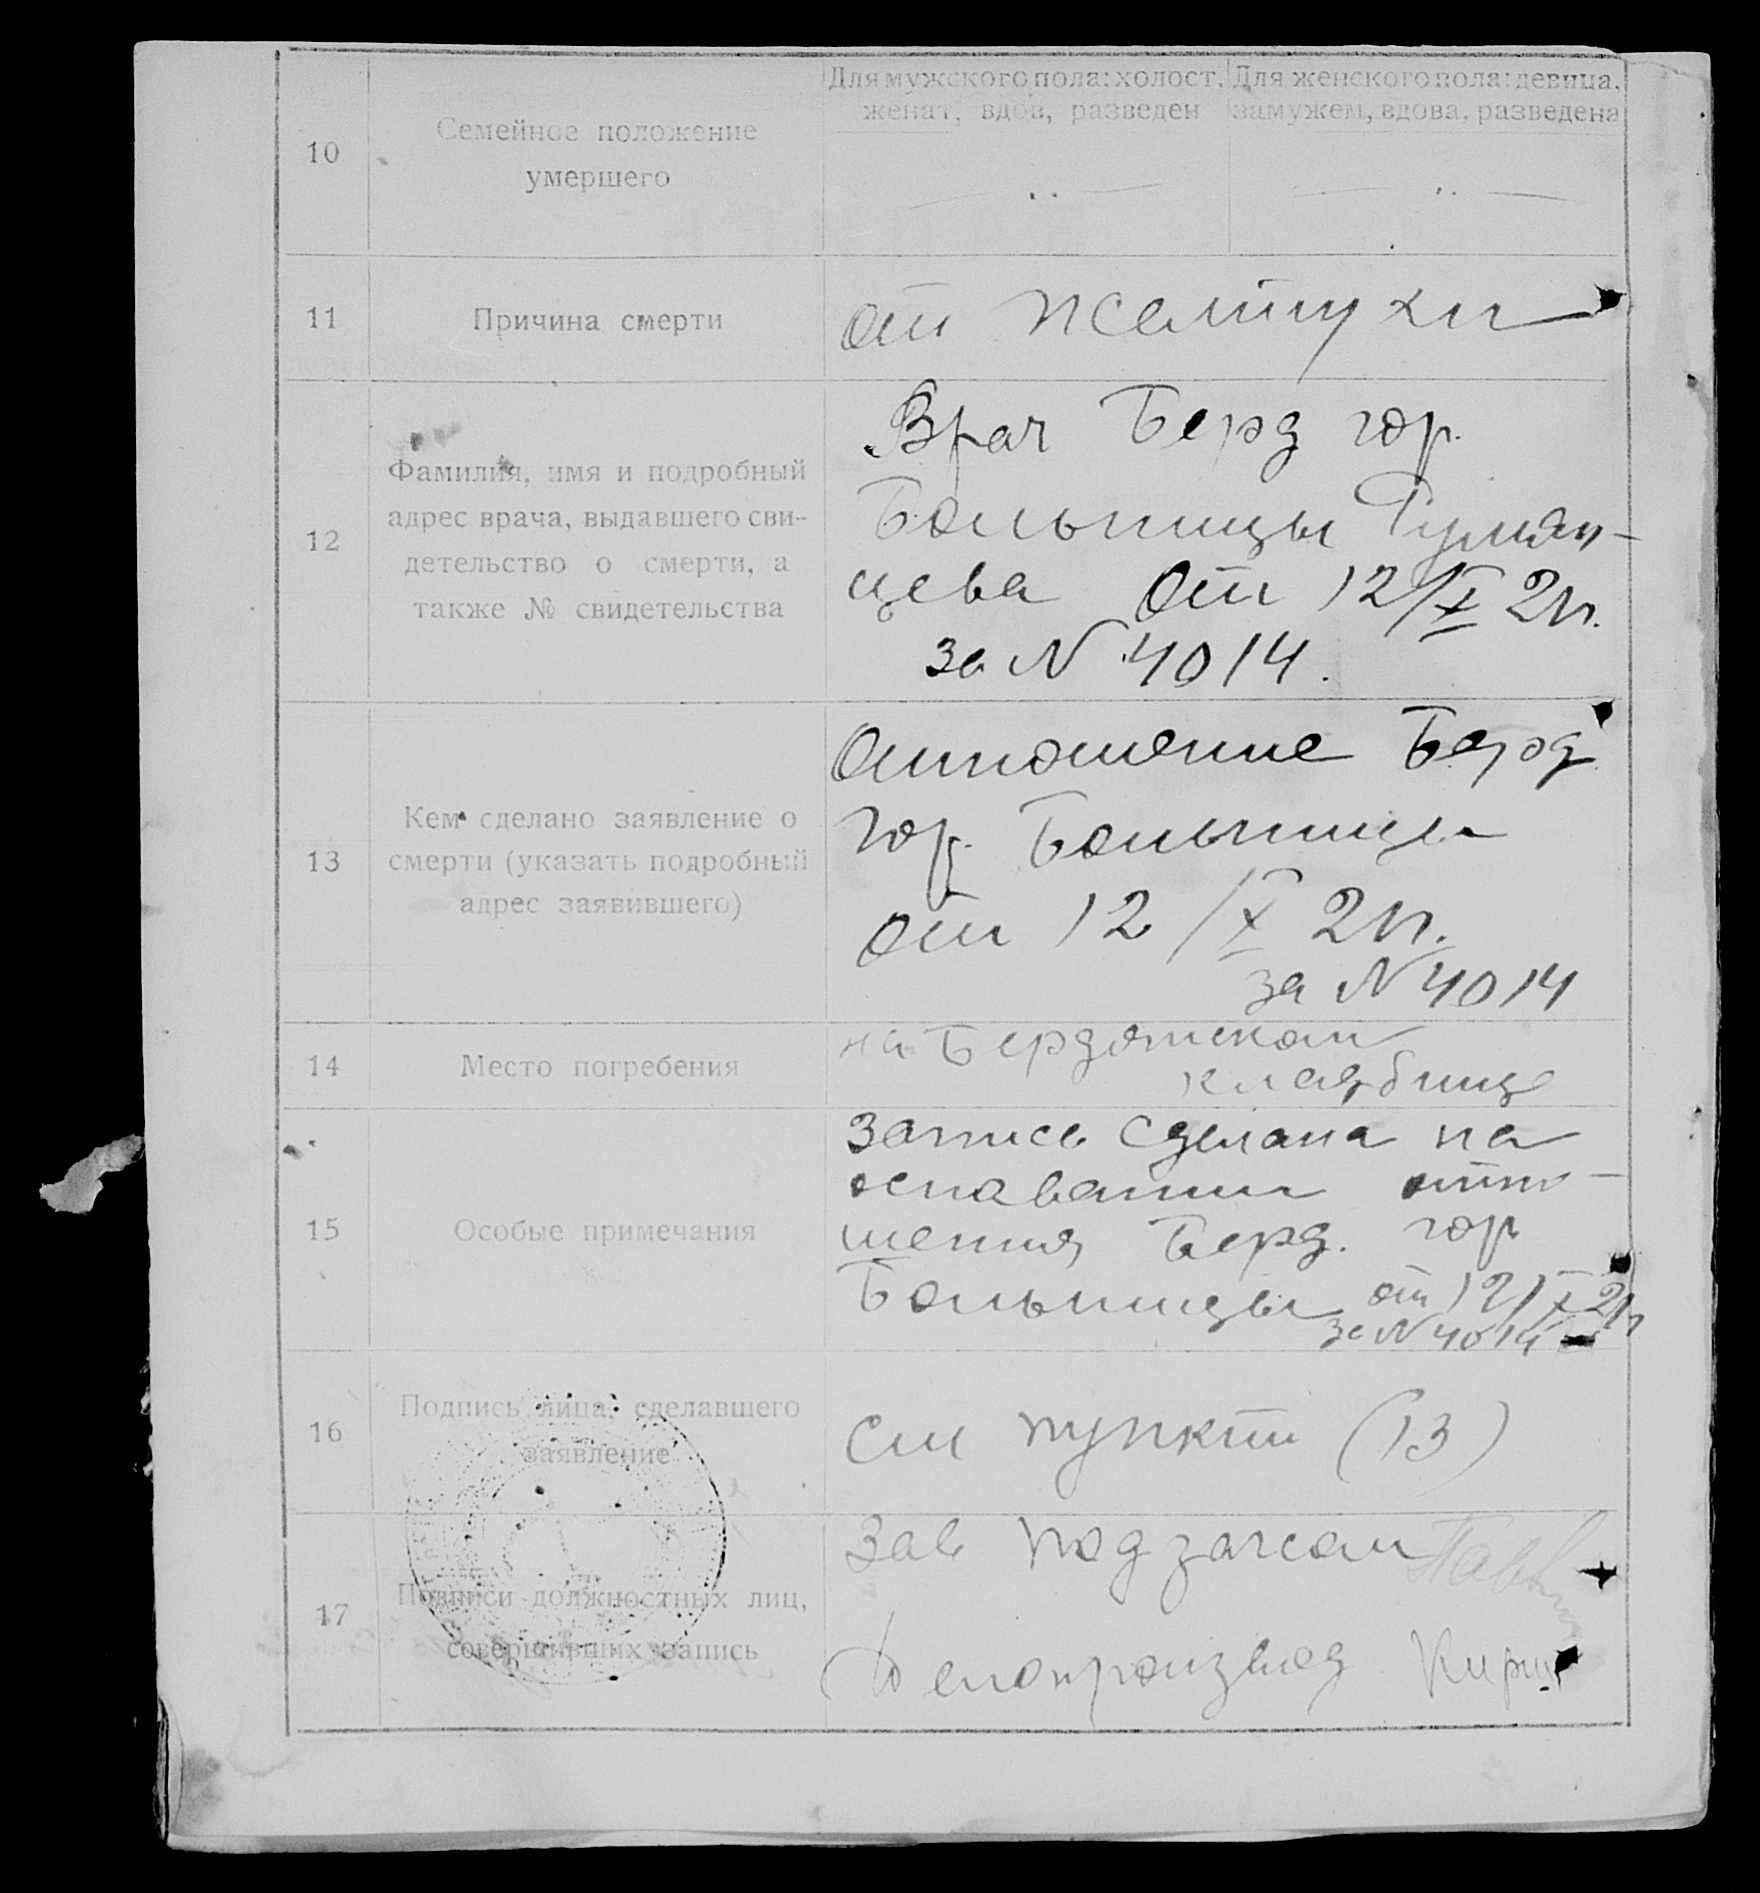 Для мужского пола: холост,
женат, вдов, разведен
Для женского пола: девица,
замужем, вдова, разведена
10
Семейное положение
умершего
— " —
— " —
11
Причина смерти
от желтухи
12
Фамилия, имя и подробный
адрес врача, выдавшего сви-
детельство о смерти, а
также № свидетельства
Врач Берд гор.
Больницы Румян-
цева от 12/X 21г.
за N 4014.
13
Кем сделано заявление о
смерти (указать подробный
адрес заявившего)
Отношение Берд
гор. Больницы
от 12/X 21г.
за N 4014
14
Место погребения
на Бердянском
кладбище
15
Особые примечания
Запись сделана на
основании отно-
шения Берд. гор
Больницы от 12/X 21г
за N 4014
16
Подпись лица, сделавшего
заявление
См пункт (13)
17
Подписи должностных лиц,
совершивших запись
Зав подзагсом
Делопроизвод